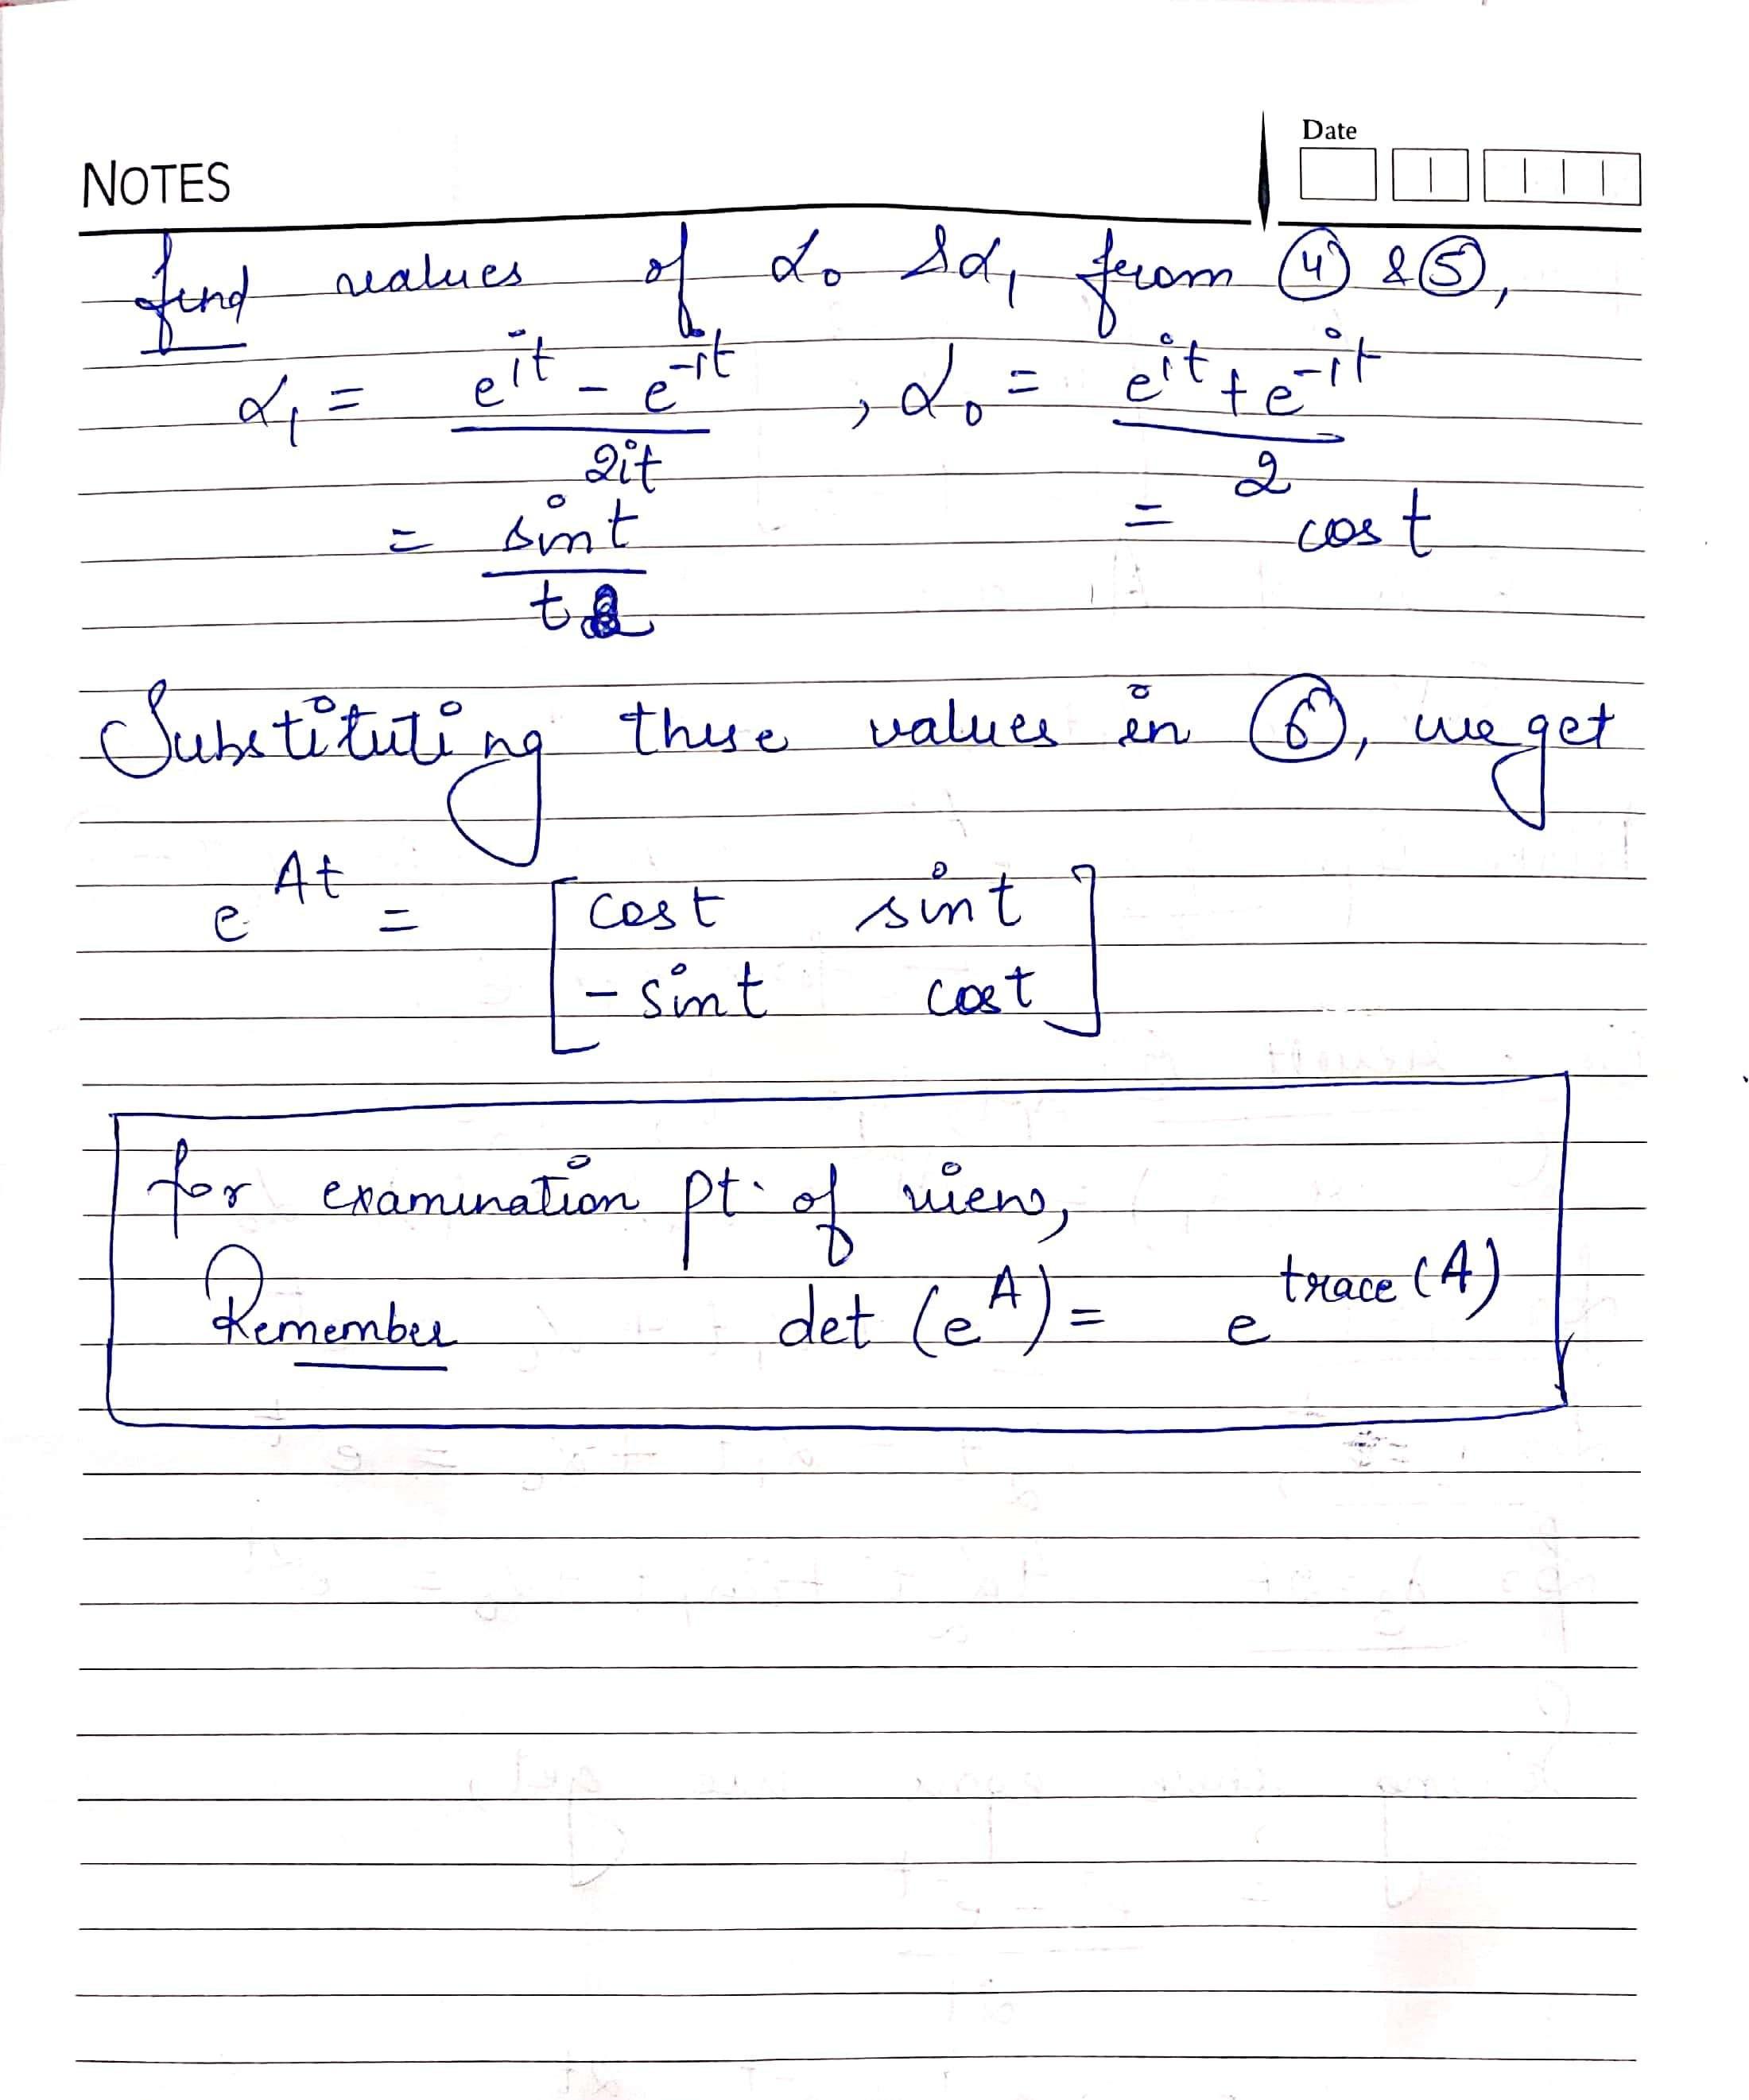 Date
NOTES
find values of α₀ & α₁ from ④ & ⑤,
α₁ = (e^{it} - e^{-it}) / 2it , α₀ = (e^{it} + e^{-it}) / 2
= sin t / t = cos t
Substituting these values in ⑥, we get
e^{At} = [cos t sin t
-sin t cos t]
for examination pt. of view,
Remember det (e^A) = e^{trace (A)}